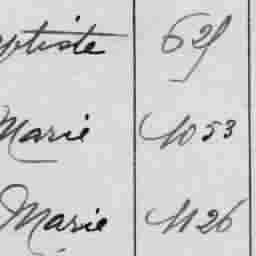 ptiste 629
Marie 1053
Marie 1126